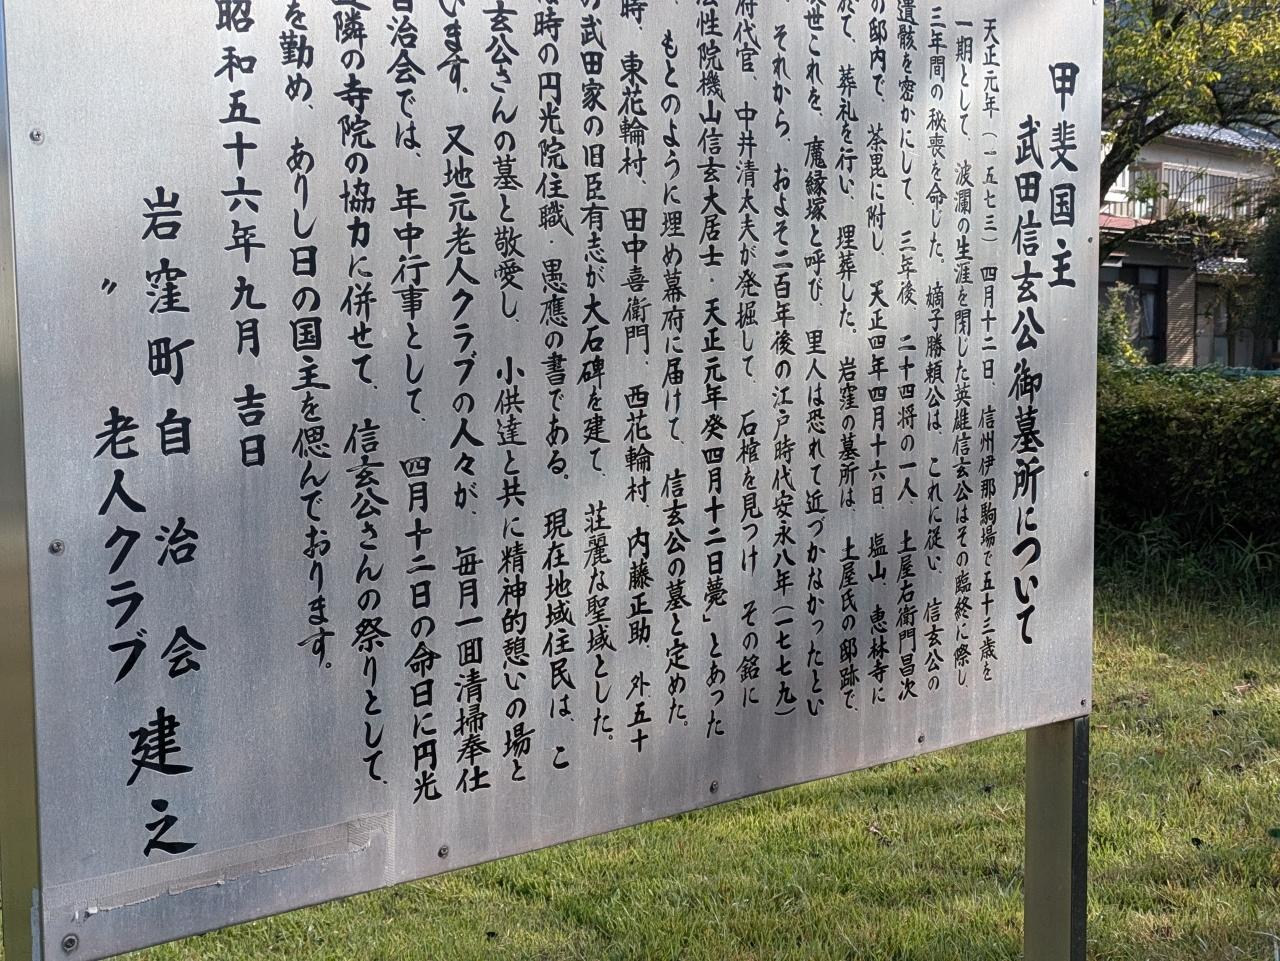 甲斐国主
武田信玄公御墓所について
天正元年(一五七三)四月十二日、信州伊那駒場で五十三歳を
一期として、波瀾の生涯を閉じた英雄信玄公はその臨終に際し
三年間の秘喪を命じた。嫡子勝頼公は、これに従い、信玄公の
遺骸を密かにして、三年後、二十四将の一人、土屋右衛門昌次
の邸内で、荼毘に附し、天正四年四月十六日、塩山、恵林寺に
於て、葬礼を行い、埋葬した。岩窪の墓所は、土屋氏の邸跡で、
世これを、魔縁塚と呼び、里人は恐れて近づかなかったとい
、それから、およそ二百年後の江戸時代安永八年(一七七九)
府代官、中井清太夫が発掘して、石棺を見つけ その銘に
法性院機山信玄大居士・天正元年癸四月十二日薨」とあった
、もとのように埋め幕府に届けて、信玄公の墓と定めた。
時、東花輪村、田中喜衛門、西花輪村、内藤正助、外五十
の武田家の旧臣有志が大石碑を建て、荘麗な聖域とした。
時の円光院住職・愚應の書である。現在地域住民は、こ
玄公さんの墓と敬愛し、小供達と共に精神的憩いの場と
います。又地元老人クラブの人々が、毎月一回清掃奉仕
自治会では、年中行事として、四月十二日の命日に円光
近隣の寺院の協力に併せて、信玄公さんの祭りとして、
を勤め、ありし日の国主を偲んでおります。
昭和五十六年九月 吉日
岩窪町自治会
〃 老人クラブ 建之